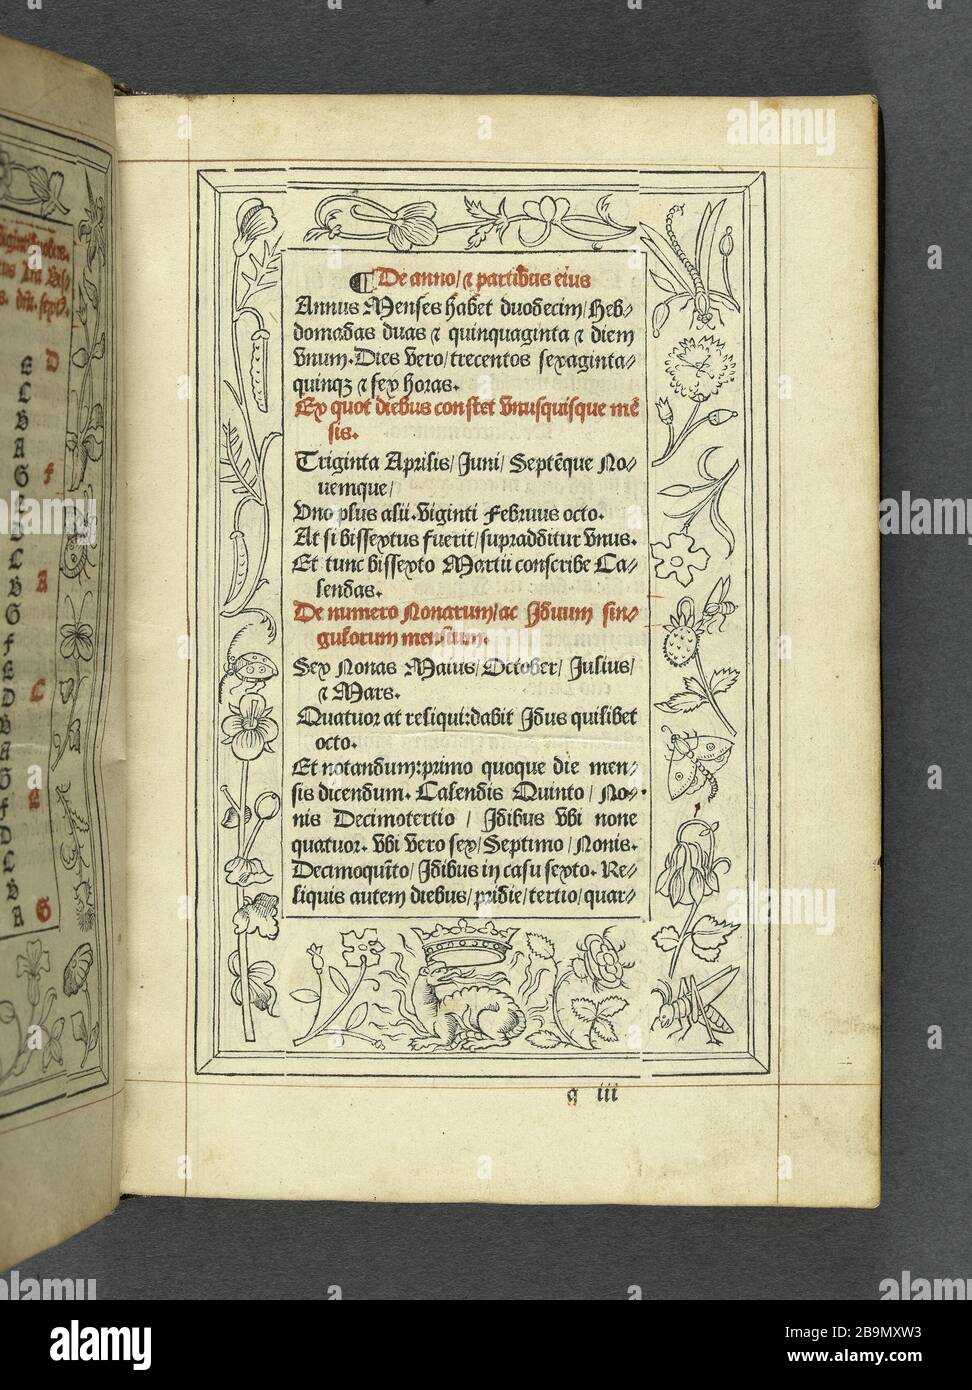 ¶ De anno/ ⁊ partibus eius
Annus Menses habet duodecim/ Heb⸗
domadas duas ⁊ quinquaginta ⁊ diem
vnum. Dies vero/ trecentos sexaginta⸗
quinqꝫ ⁊ sex horas.
Ex quot diebus constet vnusquisque mē
sis.
Triginta Aprilis/ Juni/ Septēque No⸗
uemque/
Vno plus alii. Viginti Februus octo.
At si bissextus fuerit/ supradditur vnus.
Et tunc bissexto Martii conscribe Ca⸗
lendas.
De numero Nonarum/ ac Jduum sin⸗
gulorum mensium.
Sex Nonas Maius/ October/ Julius/
⁊ Mars.
Quatuor at reliqui: dabit Jdus quilibet
octo.
Et notandum: primo quoque die men⸗
sis dicendum. Calendis Quinto/ No⸗
nis Decimotertio/ Jdibus vbi none
quatuor. Vbi vero sex/ Septimo/ Nonis.
Decimoquīto/ Jdibus in casu sexto. Re⸗
liquis autem diebus/ pridie/ tertio/ quar⸗
g iii
D
F
A
C
E
G
alamy
Image ID: 2B9MXW3
www.alamy.com